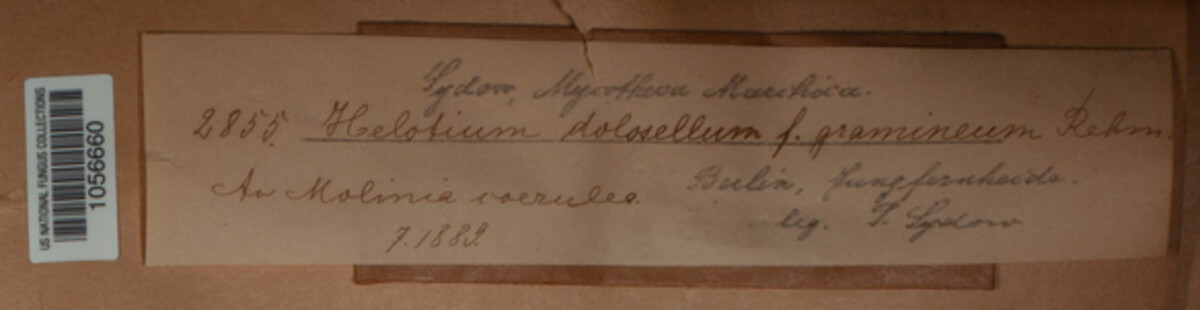 US NATIONAL FUNGUS COLLECTIONS
1056660
Sydow, Mycotheca Marchica.
2855. Helotium dolosellum f. gramineum Rehm.
An Molinia coerulea.
7.1889.
Berlin, Jungfernheide.
leg. P. Sydow